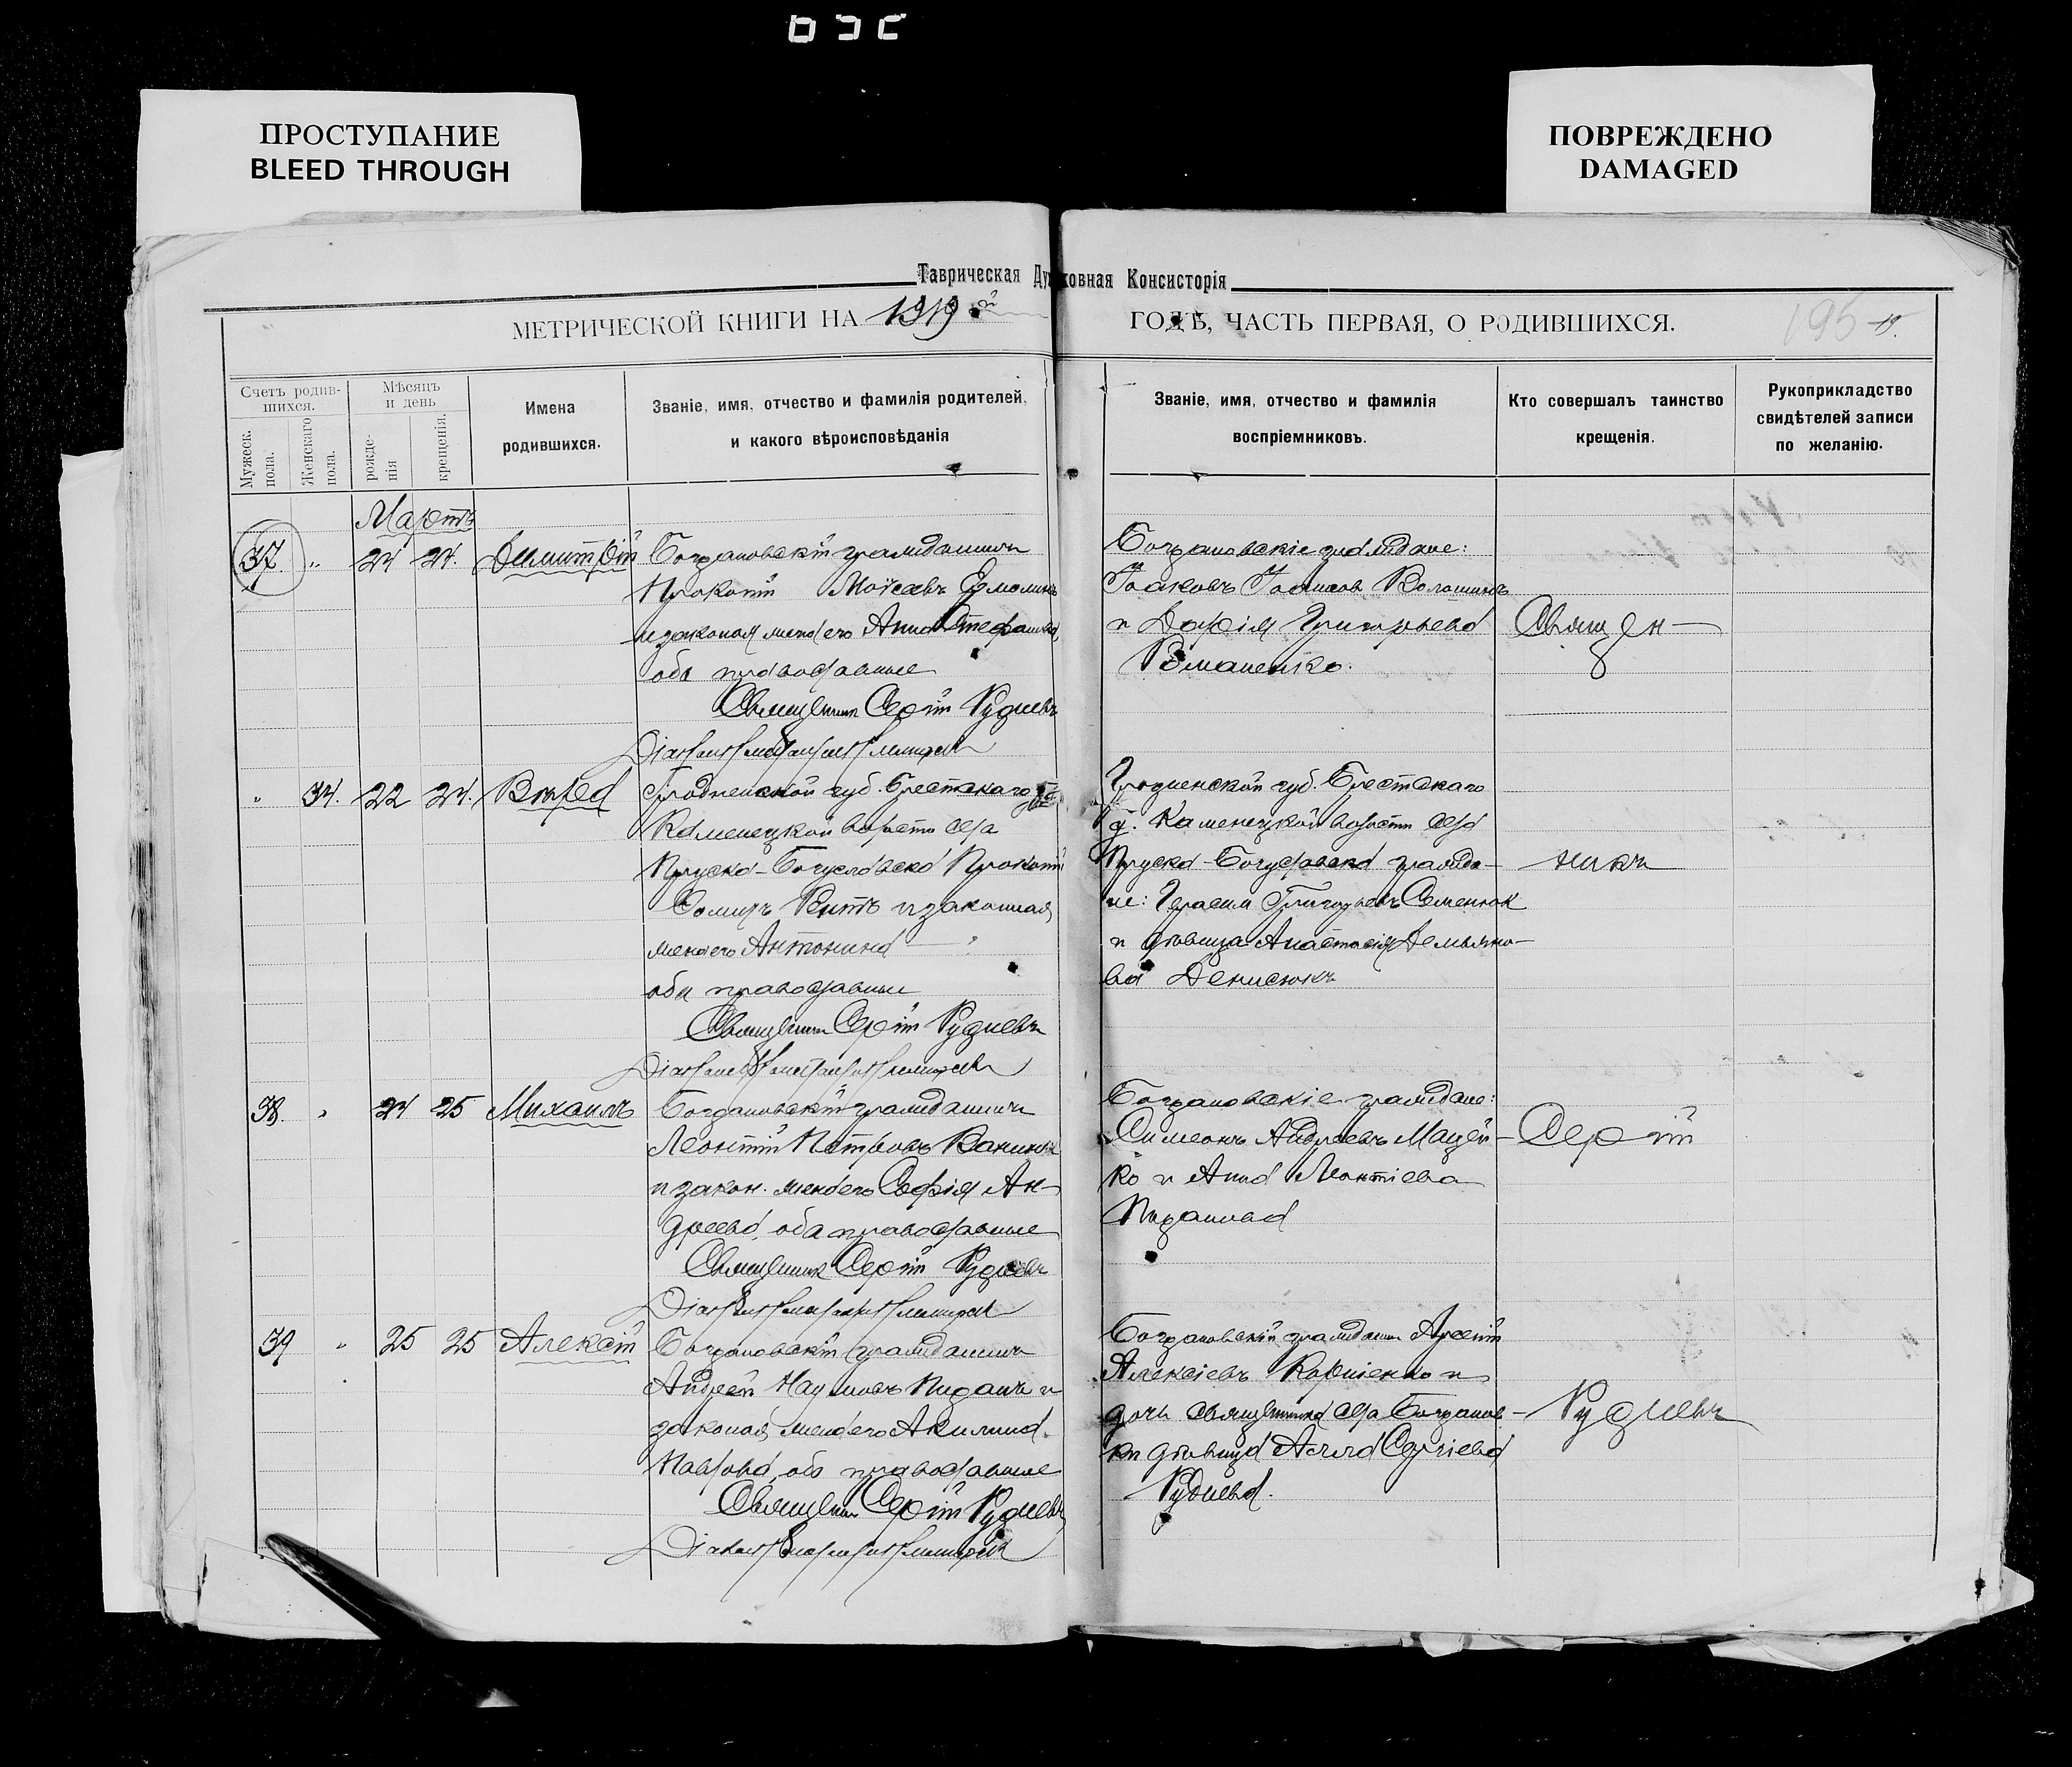 ПРОСТУПАНИЕ
BLEED THROUGH
ПОВРЕЖДЕНО
DAMAGED
Таврическая Духовная Консисторія
МЕТРИЧЕСКОЙ КНИГИ НА 1919й
ГОДЪ, ЧАСТЬ ПЕРВАЯ, О РОДИВШИХСЯ.
195
19.
Счетъ родив-
шихся.
Мужеск.
пола.
Женскаго
пола.
Мѣсяцъ
и день
рожде-
нія
крещенія.
Имена
родившихся.
Званіе, имя, отчество и фамилія родителей,
и какого вѣроисповѣданія
Званіе, имя, отчество и фамилія
воспріемниковъ.
Кто совершалъ таинство
крещенія.
Рукоприкладство
свидѣтелей записи
по желанію.
Мартъ
37. " 24 24. Димитрій
Богдановскій гражданинъ
Прокопій Моѵсеевъ Ермолинъ
и законая жена его Анна Стефанова,
оба православные
Священник Сергій Рудневъ
Богдановскіе граждане:
Іаковъ Волошинъ
и Дарія Григорьева
Романенко.
" 34. 22 24. Вѣра
Гродненской губ. Брестскаго
Каменецкой волости села
Пруска-Богуславска Прокопій
и законная
жена его Антонина
оба православные
Священник Сергій Рудневъ
Гродненской губ. Брестскаго
у. Каменецкой волости села
Пруска-Богуславска гражда-
не: Герасим Григорьевъ Семенюк
и дѣвица Анастасія Демьяно-
ва Денисюкъ
38. " 24 25 Михаилъ
Богдановскій гражданинъ
Леонтій Петровъ
и закон. жена его Софія Ан-
дреева, оба православные
Священник Сергій Рудневъ
Богдановскіе граждане:
Симеонъ Андреевъ Мацей-
ко и Анна Леонтіева
39 " 25 25 Алексій
Богдановскій гражданинъ
Андрей Наумовъ Пиданъ и
законая жена его Акилина
Павлова, оба православные
Священник Сергій Рудневъ
Богдановскій гражданин Арсеній
Алексіевъ Корніенко и
дочь священника села Богданов-
ки дѣвица Сергіева
Руднева.
Священ-
никъ
Сергій
Рудневъ